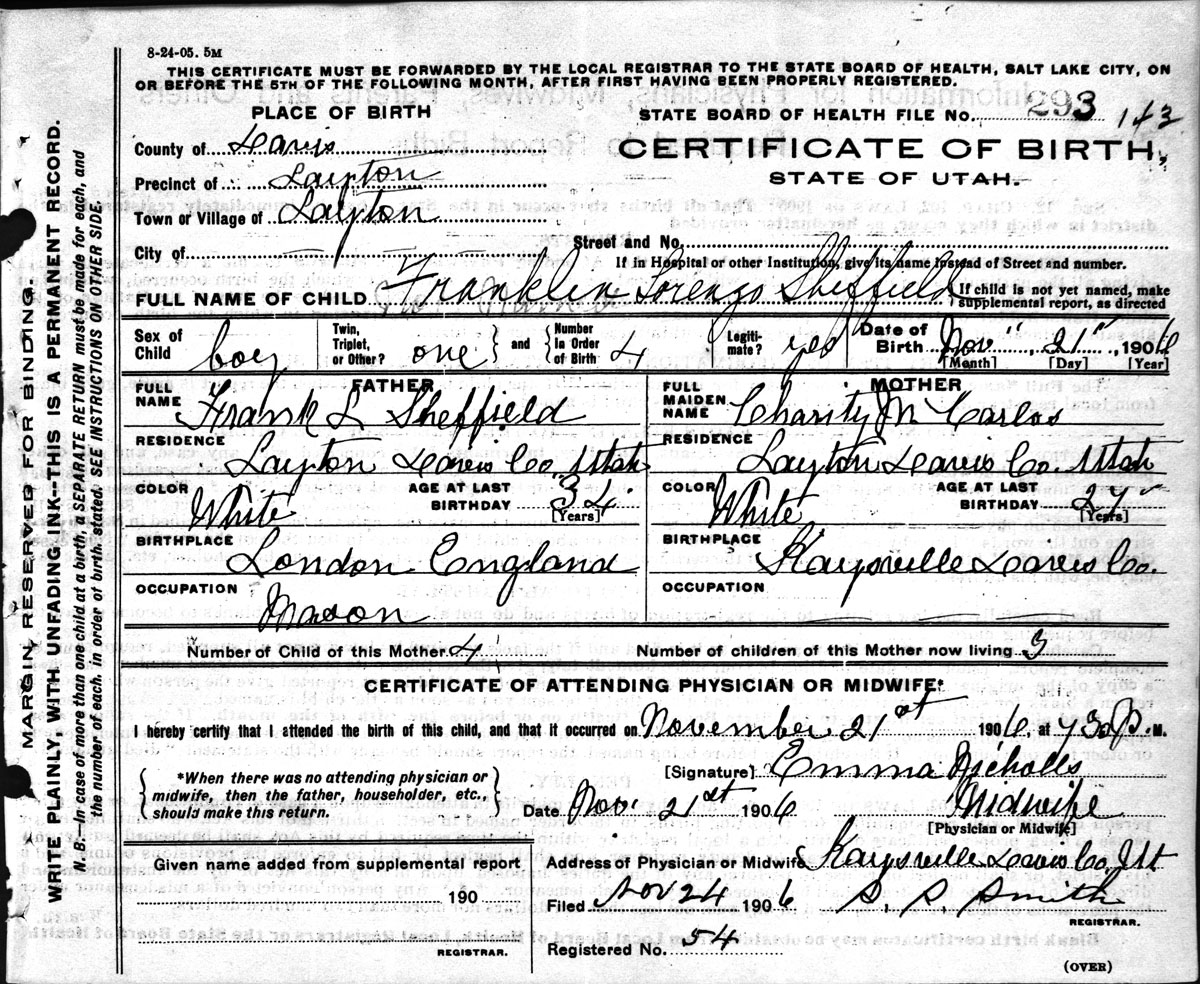 8-24-05. 5M
THIS CERTIFICATE MUST BE FORWARDED BY THE LOCAL REGISTRAR TO THE STATE BOARD OF HEALTH, SALT LAKE CITY, ON
OR BEFORE THE 5TH OF THE FOLLOWING MONTH, AFTER FIRST HAVING BEEN PROPERLY REGISTERED.
PLACE OF BIRTH
STATE BOARD OF HEALTH FILE No. 293 143
County of Davis
CERTIFICATE OF BIRTH,
STATE OF UTAH.
Precinct of Layton
Town or Village of Layton
City of Street and No.
If in Hospital or other Institution, give its name instead of Street and number.
FULL NAME OF CHILD Franklin Lorenzo Sheffield If child is not yet named, make
supplemental report, as directed
Sex of Child boy Twin, Triplet, or Other? one and Number In Order of Birth 4 Legiti-mate? yes Date of Birth Nov, 21st, 1906
[Month] [Day] [Year]
FATHER MOTHER
FULL NAME Frank L Sheffield FULL MAIDEN NAME Charity M Carlos
RESIDENCE RESIDENCE
Layton Davis Co. Utah Layton Davis Co. Utah
COLOR White AGE AT LAST BIRTHDAY 34 [Years] COLOR White AGE AT LAST BIRTHDAY 27 [Years]
BIRTHPLACE London England BIRTHPLACE Kaysville Davis Co.
OCCUPATION Mason OCCUPATION
Number of Child of this Mother 4 Number of children of this Mother now living 3
CERTIFICATE OF ATTENDING PHYSICIAN OR MIDWIFE*
I hereby certify that I attended the birth of this child, and that it occurred on November 21st 1906, at 730 P. M.
*When there was no attending physician or
midwife, then the father, householder, etc.,
should make this return.
[Signature] Emma Nicholls
Date Nov. 21st 1906 Midwife
[Physician or Midwife]
Given name added from supplemental report
190
REGISTRAR.
Address of Physician or Midwife Kaysville Davis Co, Ut
Filed Nov 24 1906 S. S. Smith
REGISTRAR.
Registered No. 54
(OVER)
MARGIN RESERVED FOR BINDING.
WRITE PLAINLY, WITH UNFADING INK---THIS IS A PERMANENT RECORD.
N. B.--In case of more than one child at a birth, a SEPARATE RETURN must be made for each, and
the number of each, in order of birth, stated. SEE INSTRUCTIONS ON OTHER SIDE.